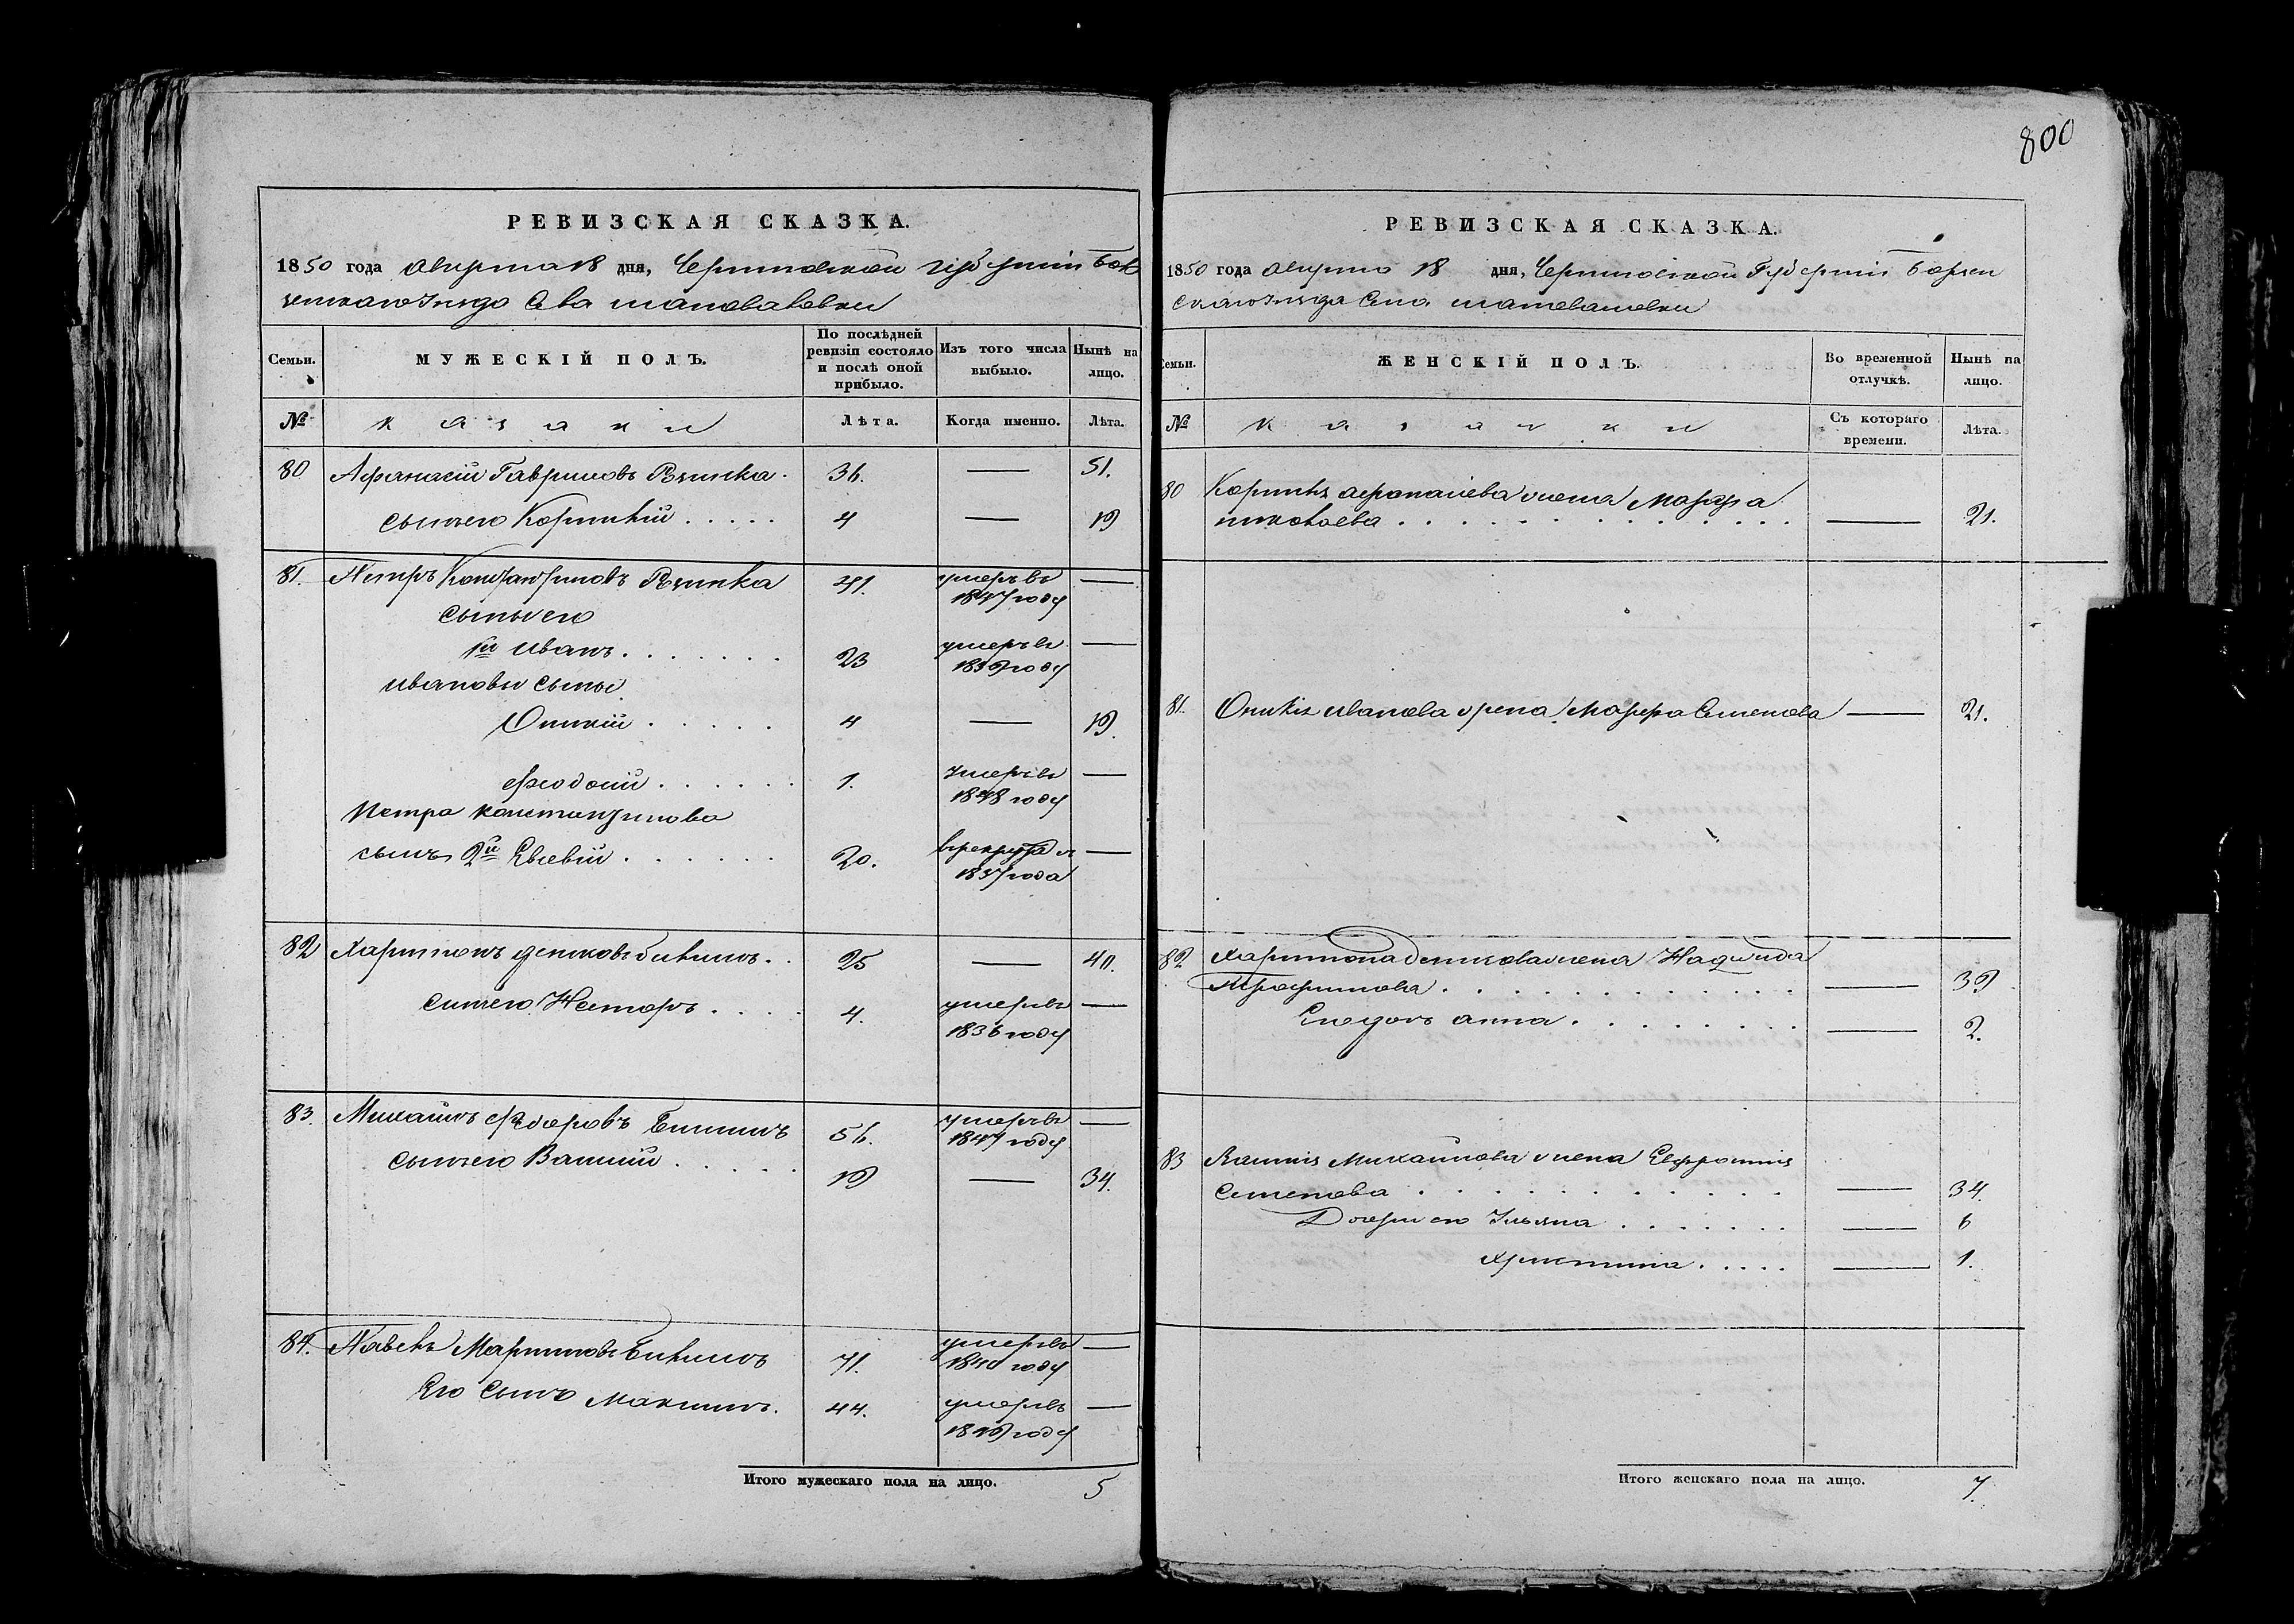 800
РЕВИЗСКАЯ СКАЗКА.
1850 года августа 18 дня, Черниговской губернiи Бор
зенского уезда Села шаповаловки
Семьи.
МУЖЕСКIЙ ПОЛЪ.
По послѣдней ревизiи состояло и послѣ оной прибыло.
Изъ того числа выбыло.
Нынѣ на лицо.
№
казаки
Лѣта.
Когда именно.
Лѣта.
80 Афанасiй Гавриловъ 36. — 51.
сынъ его Корнилiй 4 — 19
81. Петръ Константиновъ 41. умеръ въ 1847 году —
сыны его
1й Иванъ 23 умеръ въ 1839 году —
Ивановы сыны
4 — 19.
Феодосiй 1. умеръ въ 1848 году —
Петра константинова
сынъ 2й Евсевiй 20. в рекрутах 1837 года —
82 Харитонъ 25 — 40.
сынъ его Несторъ 4. умеръ въ 1836 году —
83. Михайло Федоровъ 56. умеръ въ 1847 году —
сынъ его 19 — 34.
84. Павелъ Мартиновъ 71. умеръ въ 1840 году —
Его Сынъ Максимъ. 44. умеръ въ году —
Итого мужескаго пола на лицо. 5
РЕВИЗСКАЯ СКАЗКА.
1850 года августа 18 дня, Черниговской Губернiи Борзен
ского уезда Села шаповаловки
Семьи.
ЖЕНСКIЙ ПОЛЪ.
Во временной отлучкѣ.
Нынѣ на лицо.
№
казачки
Съ котораго времени.
Лѣта.
80 Корнилiя афанасiева жена Марфа
николаева — 21.
81. Иванова жена Марфа Семенова — 21.
82 Харитона жена Надежда
Трофимова — 39
Его дочь анна — 2.
83 Михайлова жена Евфросинiя
Семенова — 34
Дочери его Ульяна — 6
Христина — 1.
Итого женскаго пола на лицо. 7.